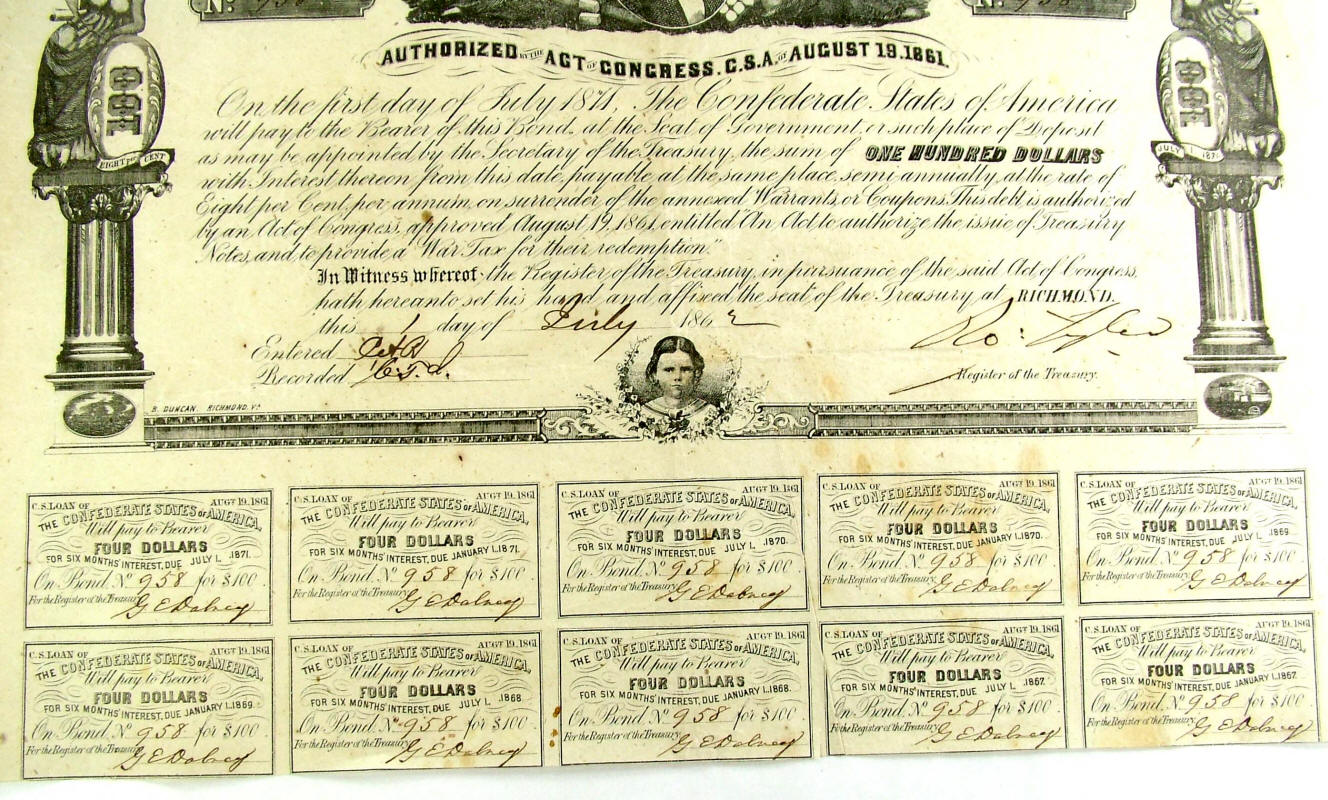 No. 958
No. 958
AUTHORIZED BY THE ACT OF CONGRESS. C.S.A. OF AUGUST 19. 1861.
On the first day of July 1871, The Confederate States of America
will pay to the Bearer of this Bond, at the Seat of Government, or such place of Deposit
as may be appointed by the Secretary of the Treasury, the sum of ONE HUNDRED DOLLARS
with Interest thereon from this date, payable at the same place, semi annually, at the rate of
Eight per Cent, per annum, on surrender of the annexed Warrants, or Coupons. This debt is authorized
by an Act of Congress, approved August 19, 1861, entitled "An Act to authorize the issue of Treasury
Notes, and to provide a War Tax for their redemption."
In Witness whereof the Register of the Treasury, in pursuance of the said Act of Congress,
hath hereunto set his hand, and affixed the seal of the Treasury, at RICHMOND.
this 1 day of July 1862
Entered
Recorded
Ro: Tyler
Register of the Treasury.
EIGHT per CENT
JULY 1 1871
B. DUNCAN. RICHMOND, Va.
C.S. LOAN OF AUGT 19. 1861
THE CONFEDERATE STATES of AMERICA,
Will pay to Bearer
FOUR DOLLARS
FOR SIX MONTHS' INTEREST, DUE JULY 1. 1871.
On Bond. No 958 for $100.
For the Register of the Treasury. G E Dabney
C.S. LOAN OF AUGT 19. 1861
THE CONFEDERATE STATES of AMERICA,
Will pay to Bearer
FOUR DOLLARS
FOR SIX MONTHS' INTEREST, DUE JANUARY 1. 1871.
On Bond. No 958 for $100.
For the Register of the Treasury. G E Dabney
C.S. LOAN OF AUGT 19. 1861
THE CONFEDERATE STATES of AMERICA,
Will pay to Bearer
FOUR DOLLARS
FOR SIX MONTHS' INTEREST, DUE JULY 1. 1870.
On Bond. No 958 for $100.
For the Register of the Treasury. G E Dabney
C.S. LOAN OF AUGT 19. 1861
THE CONFEDERATE STATES of AMERICA,
Will pay to Bearer
FOUR DOLLARS
FOR SIX MONTHS' INTEREST, DUE JANUARY 1. 1870.
On Bond. No 958 for $100.
For the Register of the Treasury. G E Dabney
C.S. LOAN OF AUGT 19. 1861
THE CONFEDERATE STATES of AMERICA,
Will pay to Bearer
FOUR DOLLARS
FOR SIX MONTHS' INTEREST, DUE JULY 1. 1869
On Bond. No 958 for $100.
For the Register of the Treasury. G E Dabney
C.S. LOAN OF AUGT 19. 1861
THE CONFEDERATE STATES of AMERICA,
Will pay to Bearer
FOUR DOLLARS
FOR SIX MONTHS' INTEREST, DUE JANUARY 1. 1869.
On Bond. No 958 for $100
For the Register of the Treasury. G E Dabney
C.S. LOAN OF AUGT 19. 1861
THE CONFEDERATE STATES of AMERICA,
Will pay to Bearer
FOUR DOLLARS
FOR SIX MONTHS' INTEREST, DUE JULY 1. 1868.
On Bond. No 958 for $100
For the Register of the Treasury. G E Dabney
C.S. LOAN OF AUGT 19. 1861
THE CONFEDERATE STATES of AMERICA,
Will pay to Bearer
FOUR DOLLARS
FOR SIX MONTHS' INTEREST, DUE JANUARY 1. 1868.
On Bond. No 958 for $100
For the Register of the Treasury. G E Dabney
C.S. LOAN OF AUGT 19. 1861
THE CONFEDERATE STATES of AMERICA,
Will pay to Bearer
FOUR DOLLARS
FOR SIX MONTHS' INTEREST, DUE JULY 1. 1867.
On Bond. No 958 for $100
For the Register of the Treasury. G E Dabney
C.S. LOAN OF AUGT 19. 1861
THE CONFEDERATE STATES of AMERICA,
Will pay to Bearer
FOUR DOLLARS
FOR SIX MONTHS' INTEREST, DUE JANUARY 1. 1867.
On Bond. No 958 for $100
For the Register of the Treasury. G E Dabney